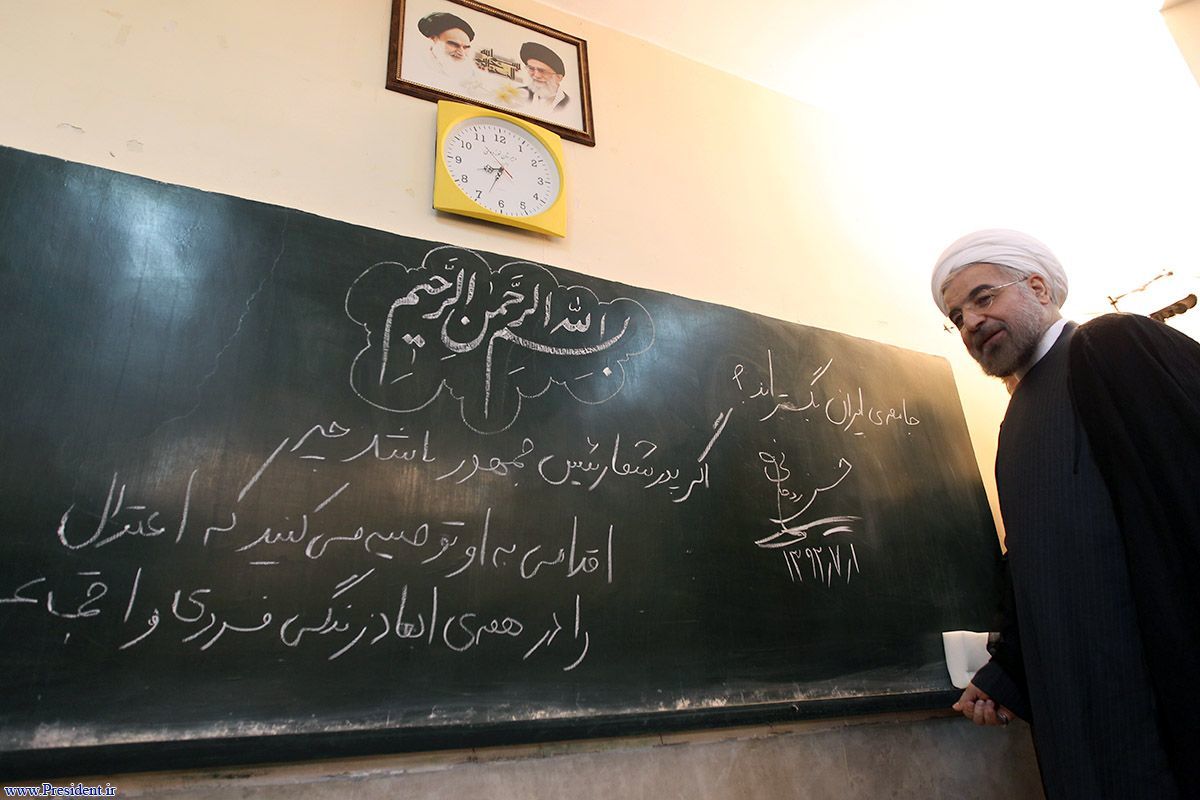 12
1
2
3
4
5
6
7
8
9
10
11
بِسْمِ اللهِ الرَّحْمنِ الرَّحِيمِ
اگر پدر شما رئیس جمهور باشد چه
اقدامی به او توصیه می کنید که اعتدال
را در همه ی ابعاد زندگی فردی و اجتماعی
جامعه ی ایران بگستراند؟
حسن روحانی
۱۳۹۲٫۷٫۱
www.President.ir